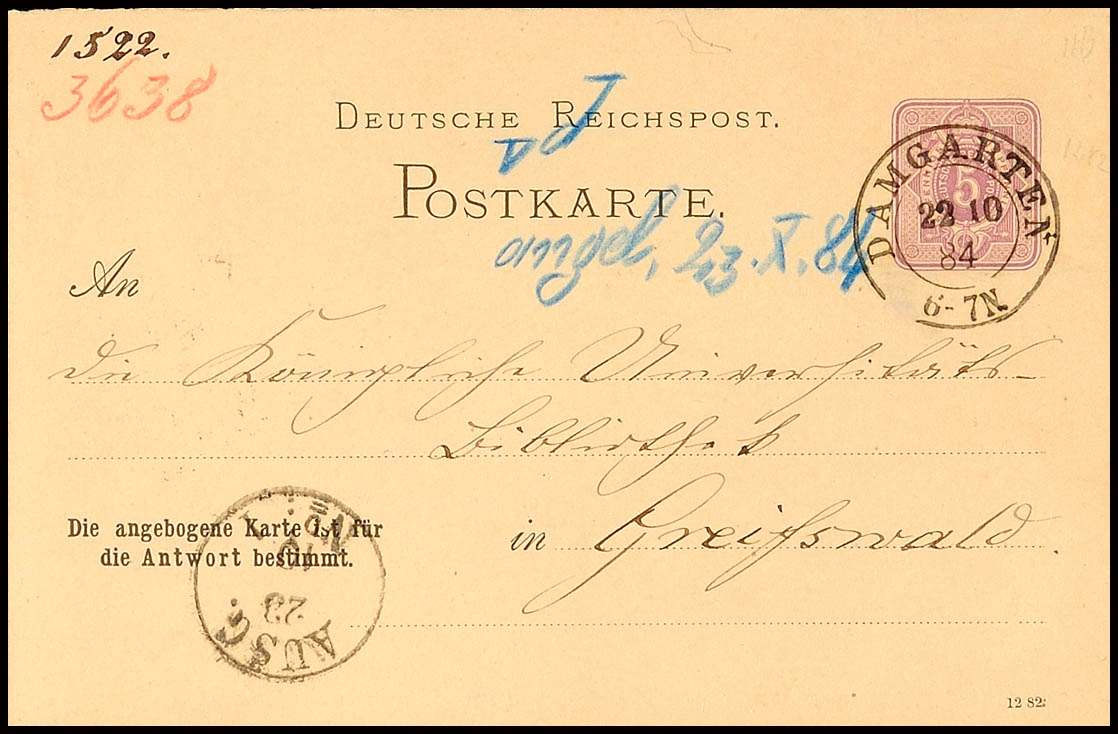 1522.
3638
DEUTSCHE REICHSPOST.
POSTKARTE.
angek. 23. X. 84
DAMGARTEN
22 10
84
6-7N.
5
An
die Königliche Universitäts-
Bibliothek
in Greifswald.
Die angebogene Karte ist für
die Antwort bestimmt.
AUSG.
23
10
12 82